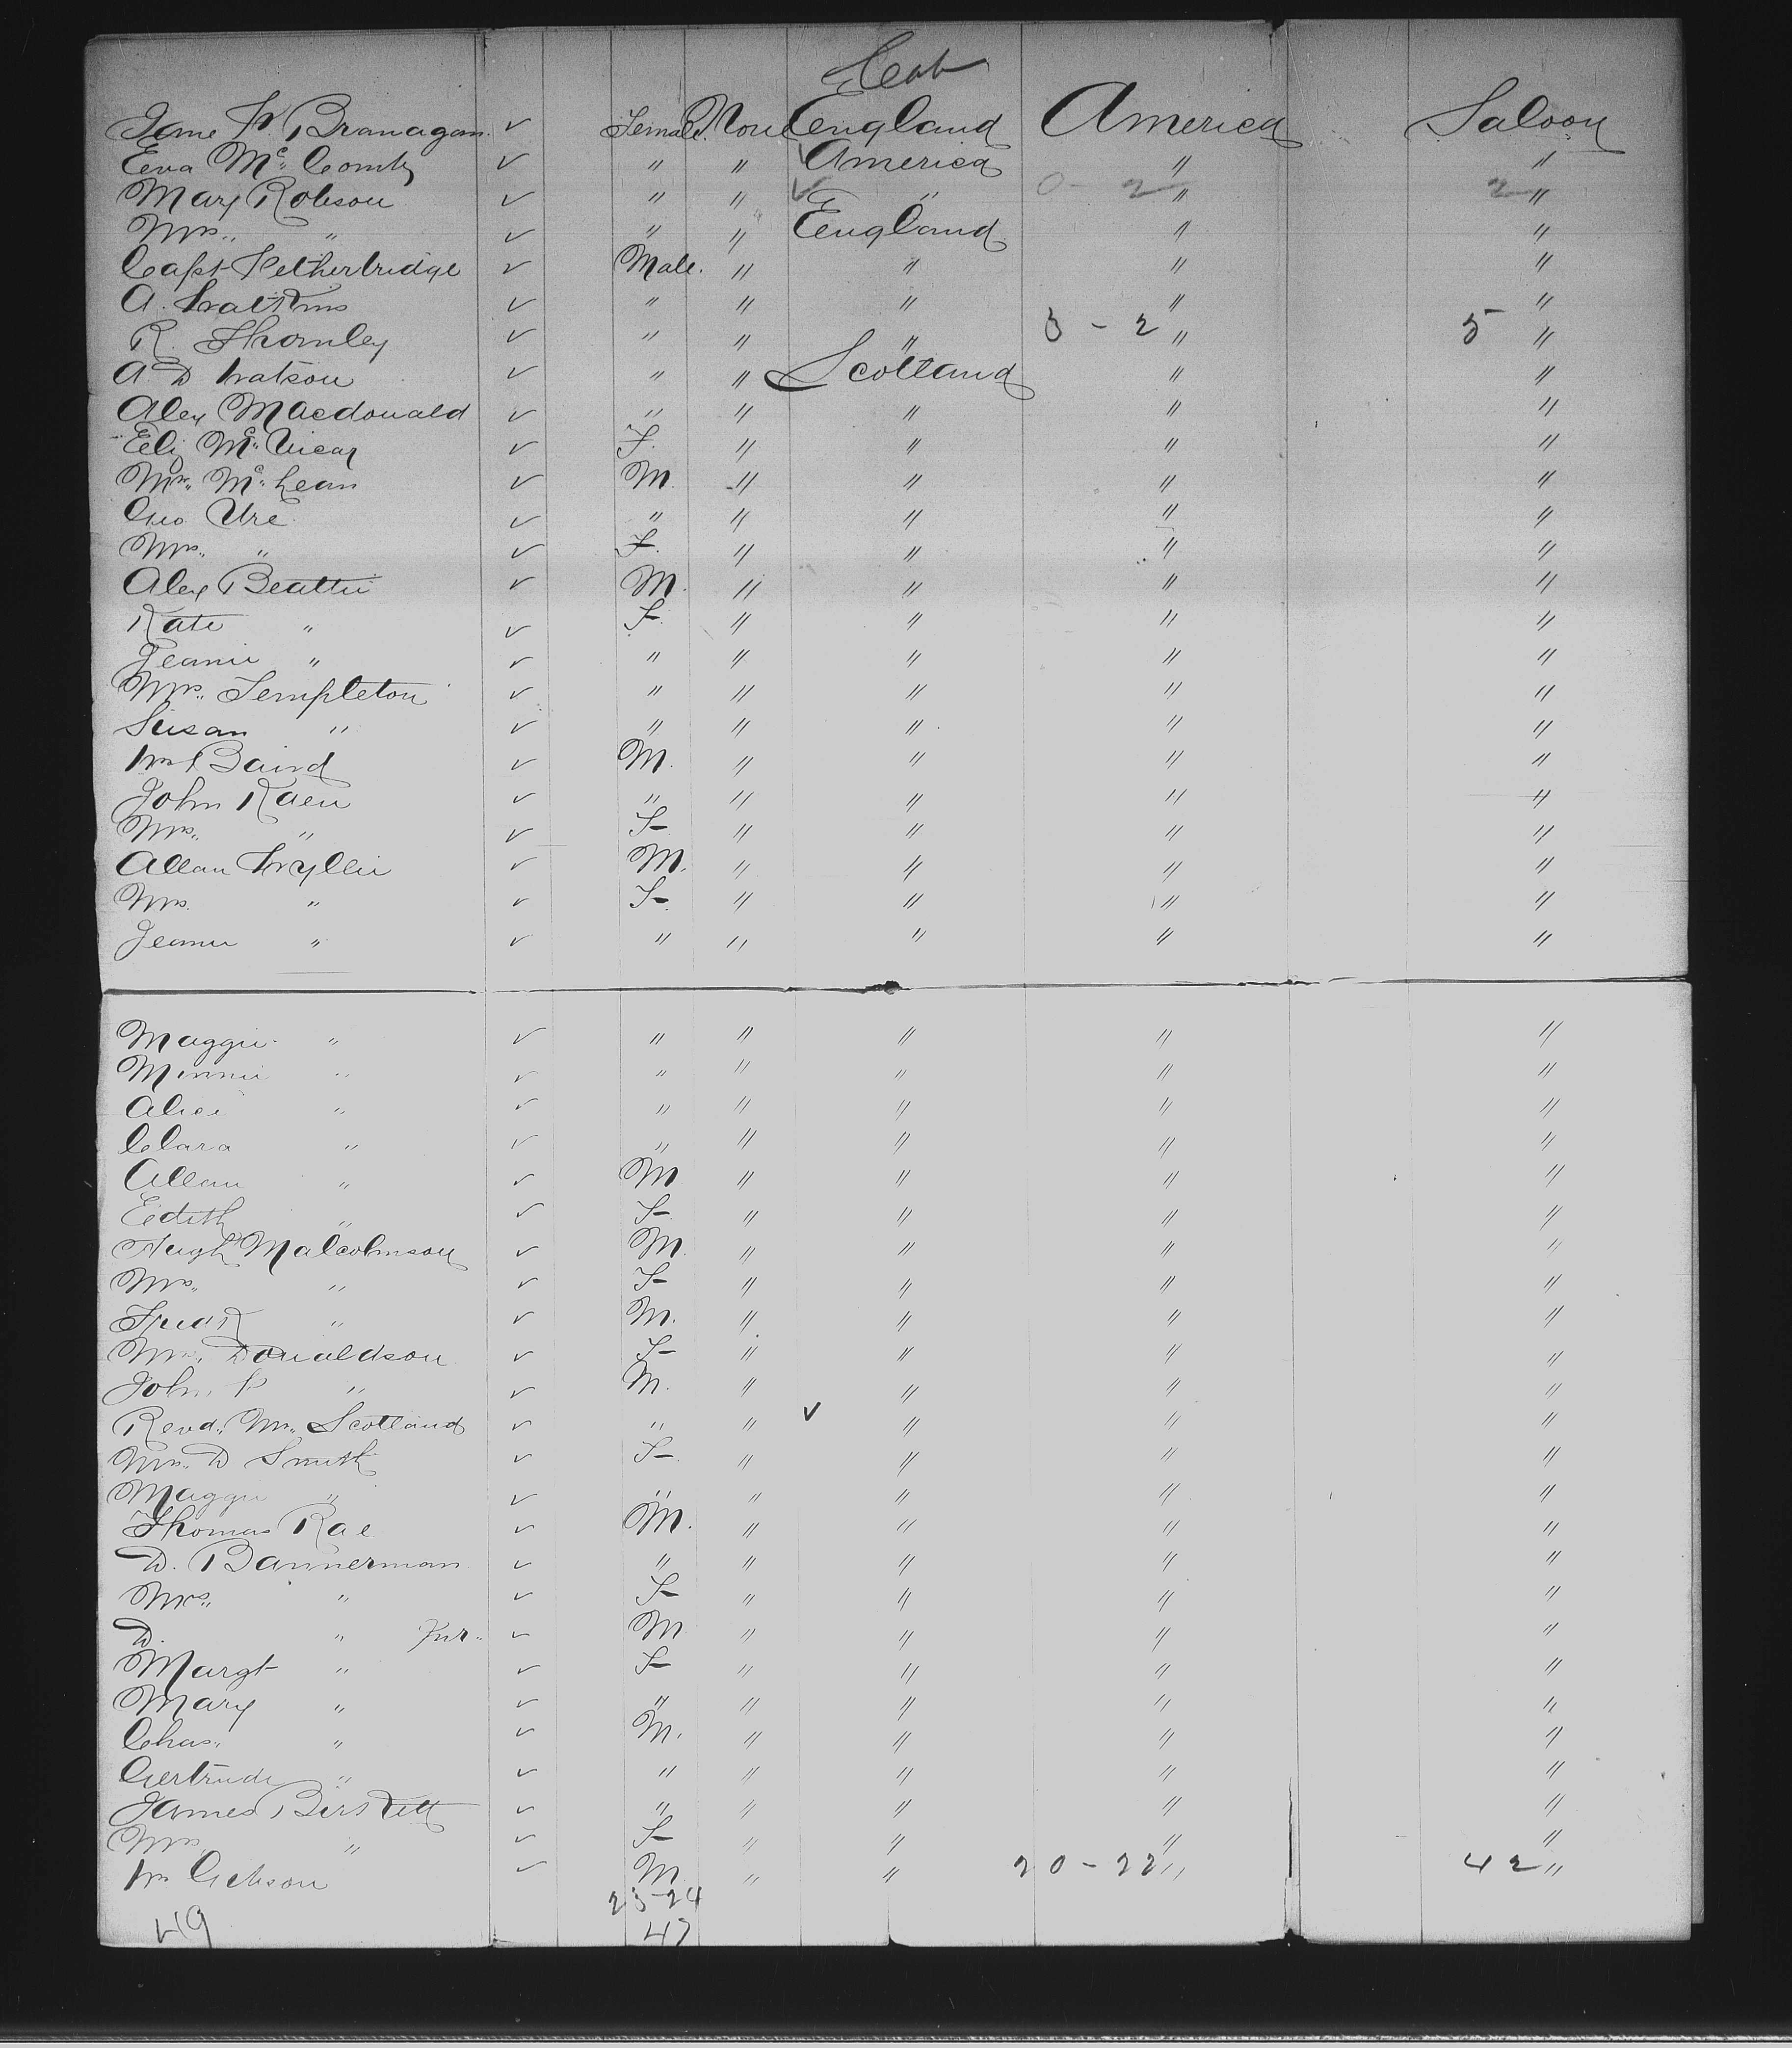 Cab
Jane W. Branagan ✓ Female. None England America Saloon
Eva Mc Comb ✓ " " America " "
Mary Robson ✓ " " ✓ " 0 - 2 " 2 "
Mrs. " ✓ " " England " "
Capt Petherbridge ✓ Male. " " " "
A. Watkins ✓ " " " " "
R. Thornley ✓ " " " 3 - 2 " 5 "
A D Watson ✓ " " Scotland " "
Alex Macdonald ✓ " " " " "
Eliz Mc Vicar ✓ F. " " " "
Mr. Mc Lean ✓ M. " " " "
Geo Ure ✓ " " " " "
Mrs. " ✓ F. " " " "
Alex Beattie ✓ M. " " " "
Kate " ✓ F. " " " "
Jeanie " ✓ " " " " "
Mrs. Templeton ✓ " " " " "
Susan " ✓ " " " " "
Wm Baird ✓ M. " " " "
John Raeu ✓ " " " " "
Mrs. " ✓ F " " " "
Allan Wyllie ✓ M. " " " "
Mrs. " ✓ F " " " "
Jeanie " ✓ " " " " "
Maggie " ✓ " " " " "
Minnie " ✓ " " " " "
Alice " ✓ " " " " "
Clara " ✓ " " " " "
Allan " ✓ M " " " "
Edith " ✓ F " " " "
Hugh Malcolmson ✓ M. " " " "
Mrs. " ✓ F " " " "
Fredk " ✓ M. " " " "
Mrs. Donaldson ✓ F " " " "
John P " ✓ M. " " " "
Revd. Mr. Scotland ✓ " " ✓ " " "
Mrs. D Smith ✓ F " " " "
Maggie " ✓ " " " " "
Thomas Rae ✓ M. " " " "
D. Bannerman ✓ " " " " "
Mrs. " ✓ F " " " "
D. " Jnr. ✓ M " " " "
Margt " ✓ F " " " "
Mary " ✓ " " " " "
Chas. " ✓ M. " " " "
Gertrude " ✓ " " " " "
James Birkett ✓ " " " " "
Mrs " ✓ F " " " "
Wm ✓ M " " 20 - 22 " 42 "
23-24
49 47